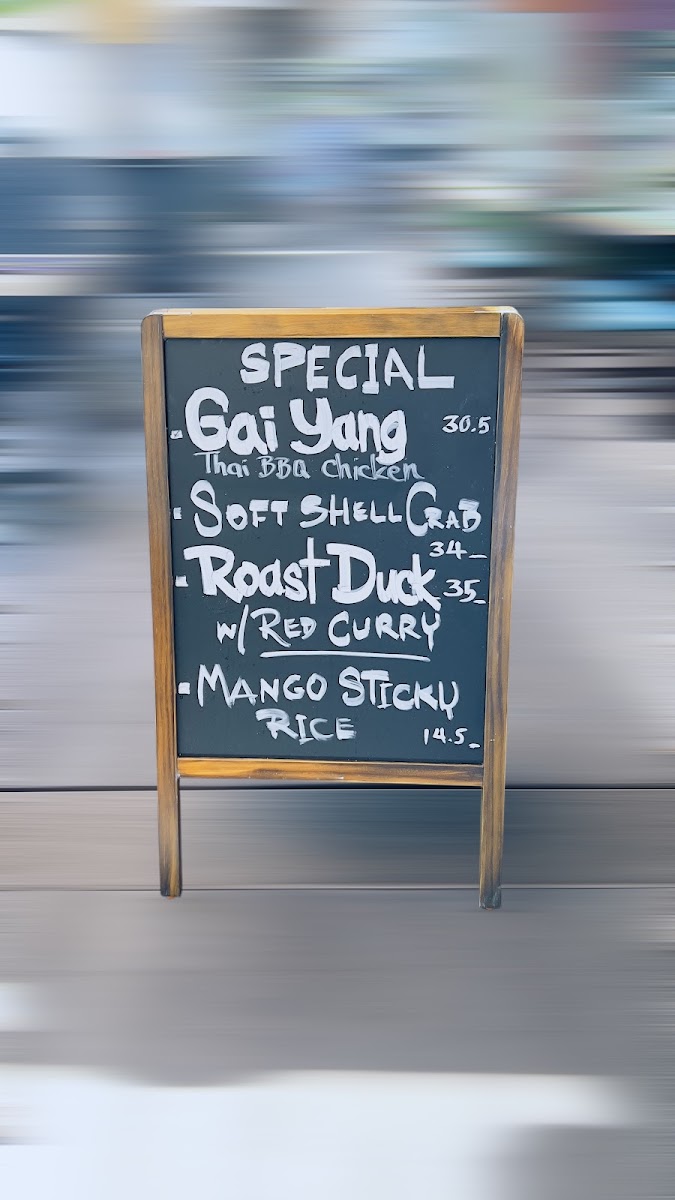 SPECIAL
- Gai Yang 30.5
Thai BBQ Chicken
- SOFT SHELL CRAB
34_
- Roast Duck 35_
w/ RED CURRY
- MANGO STICKY
RICE 14.5_